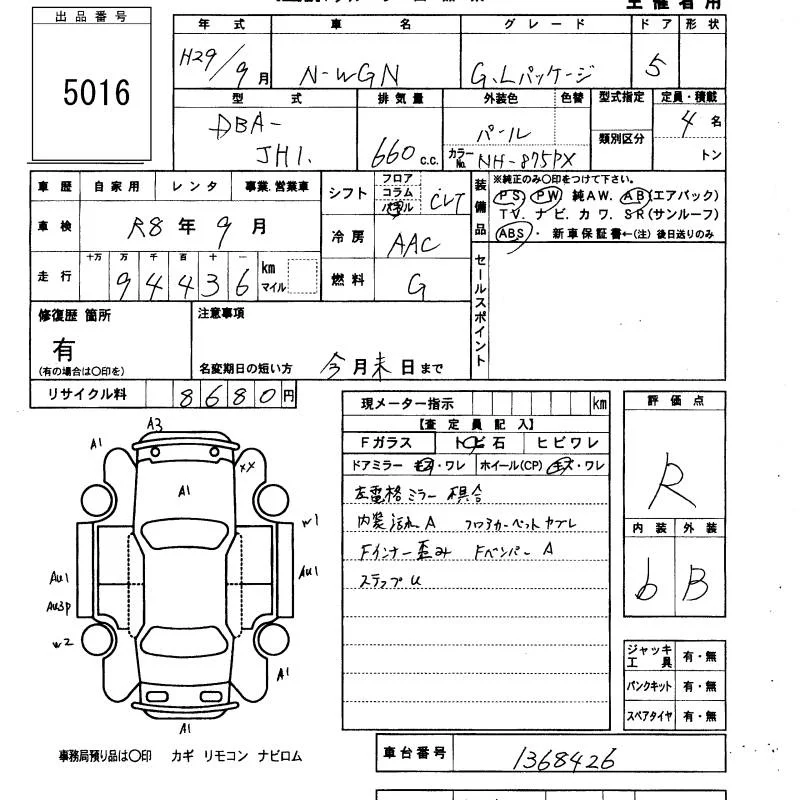 出品番号
5016
年式 車名 グレード ドア 形状
H29/9月 N-WGN G.Lパッケージ 5
型式 排気量 外装色 色替 型式指定 定員・積載
DBA-JH1. 660c.c. パール カラーNo. NH-875PX 類別区分 4名 トン
車歴 自家用 レンタ 事業.営業車
車検 R8年9月
走行 十万 万 千 百 十 一 km マイル
94436
シフト フロア コラム パネル CVT
冷房 AAC
燃料 G
装備品 ※純正のみ○印をつけて下さい。
PS. PW 純AW. AB(エアバック)
TV. ナビ. カワ. SR(サンルーフ)
ABS・新車保証書←(注)後日送りのみ
セールスポイント
修復歴 箇所
有
(有の場合は○印を)
注意事項
名変期日の短い方 今月末日まで
リサイクル料 8680円
現メーター指示 km
【査定員記入】
Fガラス トビ石 ヒビワレ
ドアミラー キズ・ワレ ホイール(CP) キズ・ワレ
左電格ミラー 具合
内装汚れA フロアカーペットヤブレ
Fインナー歪み Fベンパー A
ステップU
評価点
R
内装 外装
b B
A3
A1
XX
A1
W1
AU1
AU1
AU3P
W2
A1
A1
ジャッキ工具 有・無
パンクキット 有・無
スペアタイヤ 有・無
事務局預り品は○印 カギ リモコン ナビロム
車台番号 1368426